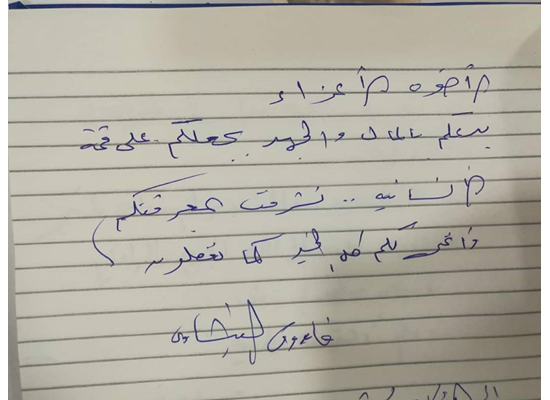 الأخوه الأعزاء
بذلكم بالمال والجهد .. يجعلكم على قمة
الإنسانيه .. تشرفت بمعرفتكم
وأتمنى لكم كل الخير كما تفعلون
فاروق